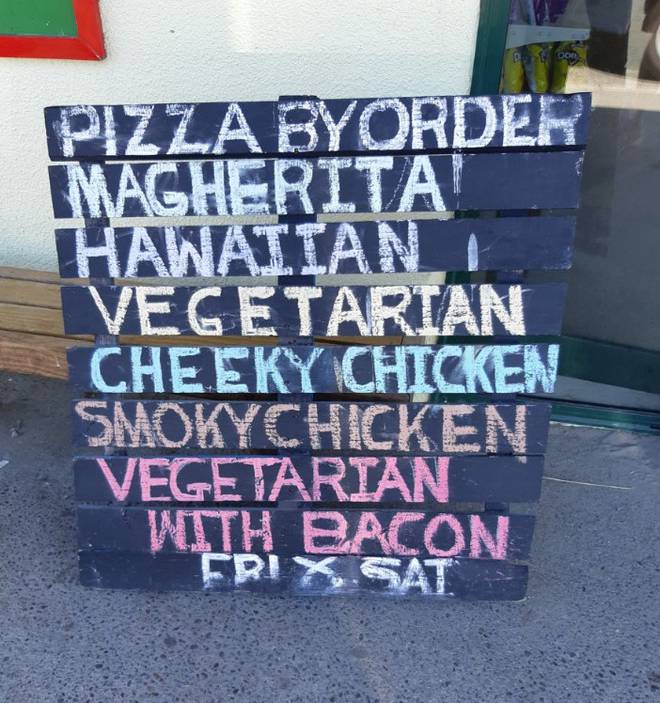 PIZZA BY ORDER
MAGHERITA
HAWAIIAN
VEGETARIAN
CHEEKY CHICKEN
SMOKY CHICKEN
VEGETARIAN
WITH BACON
FRI & SAT